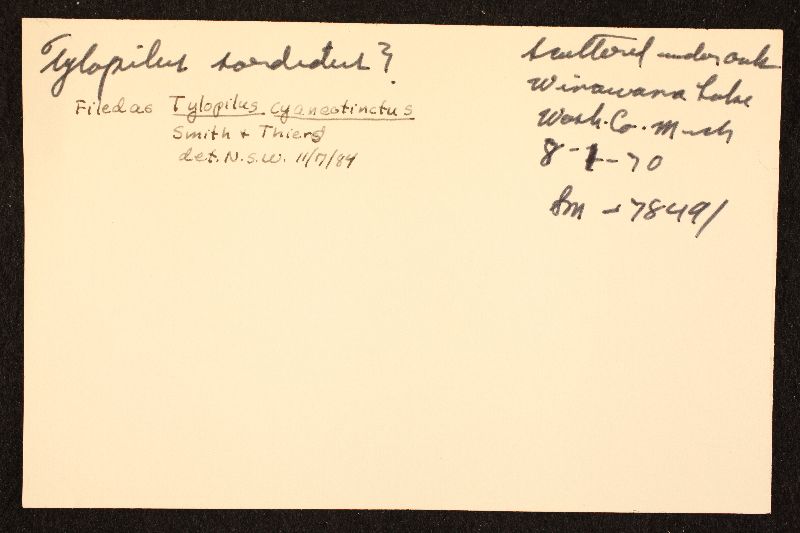 Tylopilus sordidus?
Filed as Tylopilus cyaneotinctus
Smith + Thiers
det. N.S.W. 11/7/84
scattered under oak
Winnewana Lake
Wash. Co. Mich
8-1-70
Sm - 78491